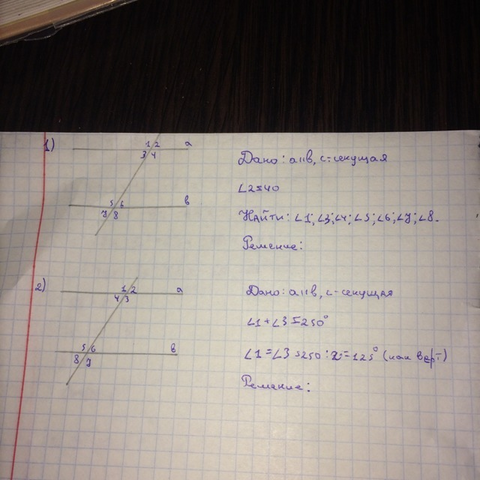 1)
1 2 a
3 4
5 6 в
7 8
Дано: a11в, c-секущая
∠2=40
Найти: ∠1; ∠3; ∠4; ∠5; ∠6; ∠7; ∠8.
Решение:
2)
1 2 a
4 3
5 6 в
8 7
Дано: a11в, c-секущая
∠1+∠3=250°
∠1=∠3=250:2=125° (как верт)
Решение: